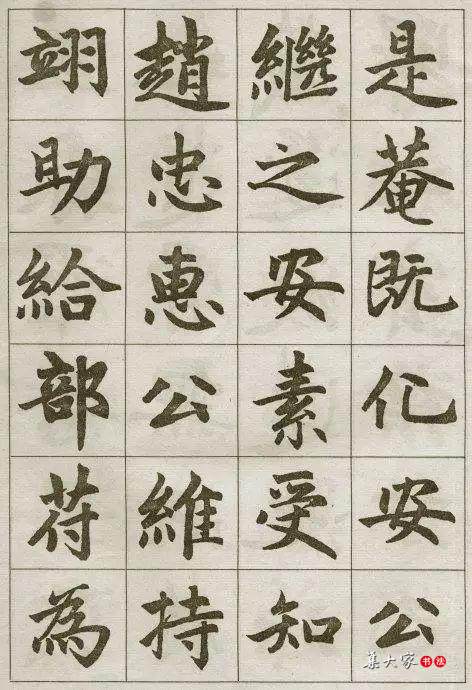 是菴既化安公
繼之安素受知
趙忠惠公維持
翊助給部苻為
集大家书法